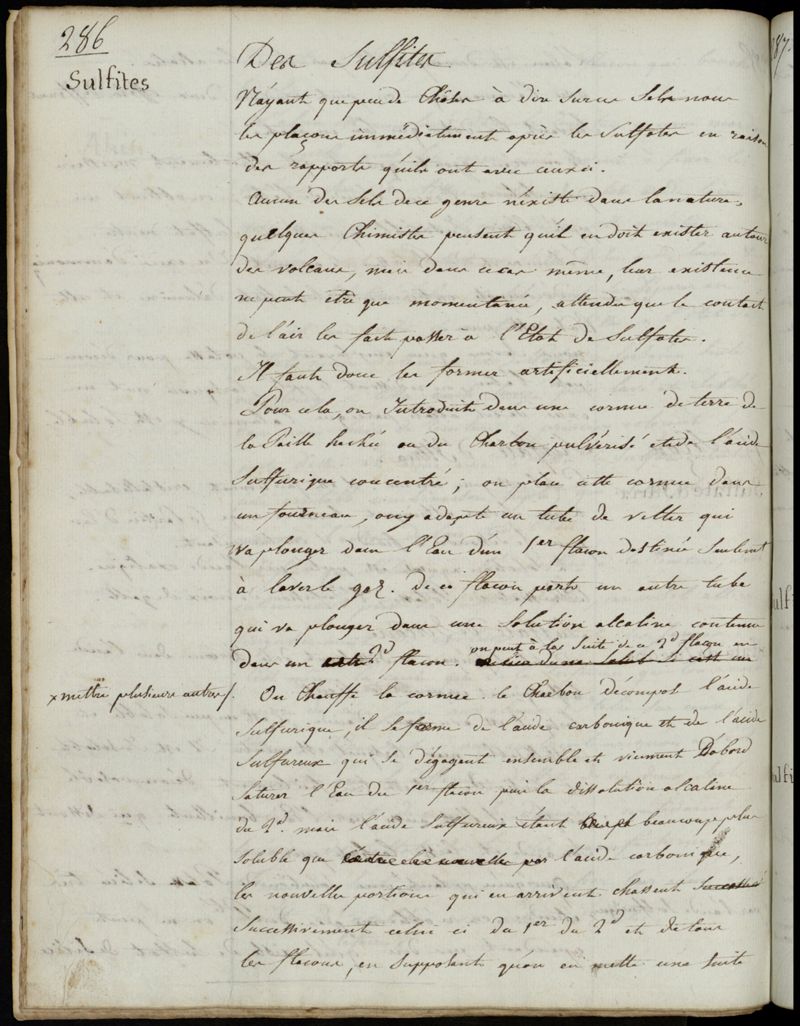 286
Sulfites
Des Sulfites
N'ayant que peu de Choses à dire sur ces Sels nous
les plaçons immédiatement après les Sulfates en raison
des rapports qu'ils ont avec ceux ci.
Aucun des Sels de ce genre n'éxiste dans la nature,
quelques Chimistes pensent qu'il en doit exister autour
des volcans, mais dans ce cas même, leur existence
ne peut être que momentanée, attendu que le contact
de l'air les fait passer à l'Etat de Sulfates.
Il faut donc les former artificiellement.
Pour cela, on Introduit dans une cornue de terre de
la Paille hachée ou du Charbon pulvérisé et de l'acide
Sulfurique concentré; on place cette cornue dans
un fourneau, on y adapte un tube de velter qui
va plonger dans l'Eau d'un 1er flacon destiné Seulemt
à laver le gaz. de ce flacon part un autre tube
qui va plonger dans une Solution alcaline contenue
on peut à la Suite de ce 2d flacon en
dans un 2d flacon.
x mettre plusieurs autres/. On Chauffe la cornue. le Charbon décompose l'acide
Sulfurique, il se forme de l'acide carbonique et de l'acide
Sulfureux qui se dégagent ensemble et viennent D'abord
Saturer l'Eau du 1er flacon puis la dissolution alcaline
du 2d. mais l'acide Sulfureux étant beaucoup plus
Soluble que l'acide carbonique,
les nouvelles portions qui en arrivent chassent
Successivement celui ci du 1er du 2d et de tous
les flacons, en Supposant qu'on en mette une Suite
287.
Sulfi
ulfi